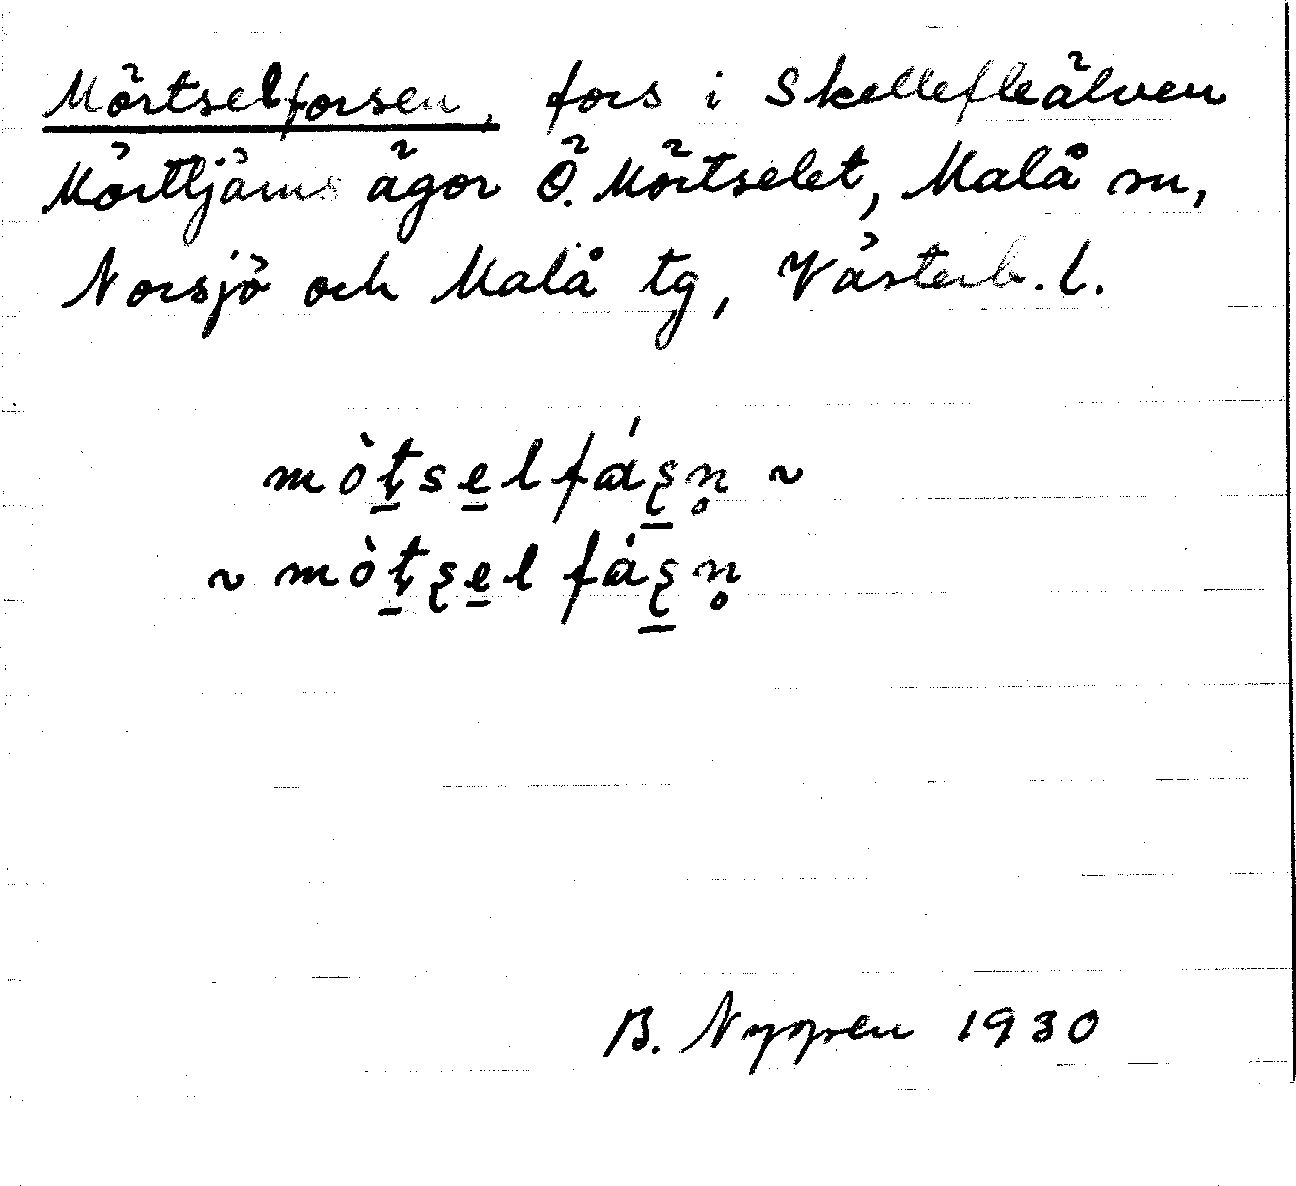 Mörtselforsen, fors i Skellefteälven
Mörttjärns ägor Ö. Mörtselet, Malå sn,
Norsjö och Malå tg, Västerb. l.
mò̀ṯse̱lfáʂn̥ ~
~ mòṯʂe̱l fáʂn̥
B. Nyppen 1930